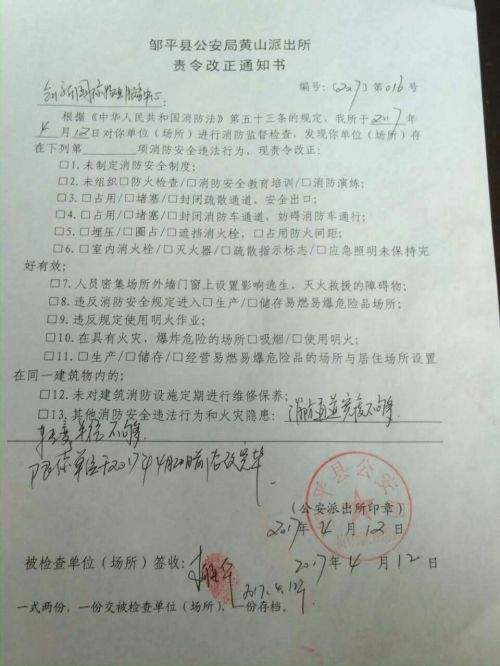 邹平县公安局黄山派出所
责令改正通知书
编号：〔2017〕第016号
国际 中心：
根据《中华人民共和国消防法》第五十三条的规定，我所于2017年
4月12日对你单位（场所）进行消防监督检查，发现你单位（场所）存
在下列第 项消防安全违法行为，现责令改正：
□1. 未制定消防安全制度；
□2. 未组织□防火检查/□消防安全教育培训/□消防演练；
□3. □占用/□堵塞/□封闭疏散通道、安全出口；
□4. □占用/□堵塞/□封闭消防车通道，妨碍消防车通行；
□5. □埋压/□圈占/□遮挡消火栓，□占用防火间距；
□6. □室内消火栓/□灭火器/□疏散指示标志/□应急照明未保持完
好有效；
□7. 人员密集场所外墙门窗上设置影响逃生、灭火救援的障碍物；
□8. 违反消防安全规定进入□生产/□储存易燃易爆危险品场所；
□9. 违反规定使用明火作业；
□10. 在具有火灾、爆炸危险的场所□吸烟/□使用明火；
□11. □生产/□储存/□经营易燃易爆危险品的场所与居住场所设置
在同一建筑物内的；
□12. 未对建筑消防设施定期进行维修保养；
□13. 其他消防安全违法行为和火灾隐患：消防通道宽度不够
不够
限你单位于2017年4月20日前整改完毕
（公安派出所印章）
2017年4月12日
被检查单位（场所）签收： 2017年4月12日
2017.4.12号
一式两份，一份交被检查单位（场所），一份存档。
平县公安局